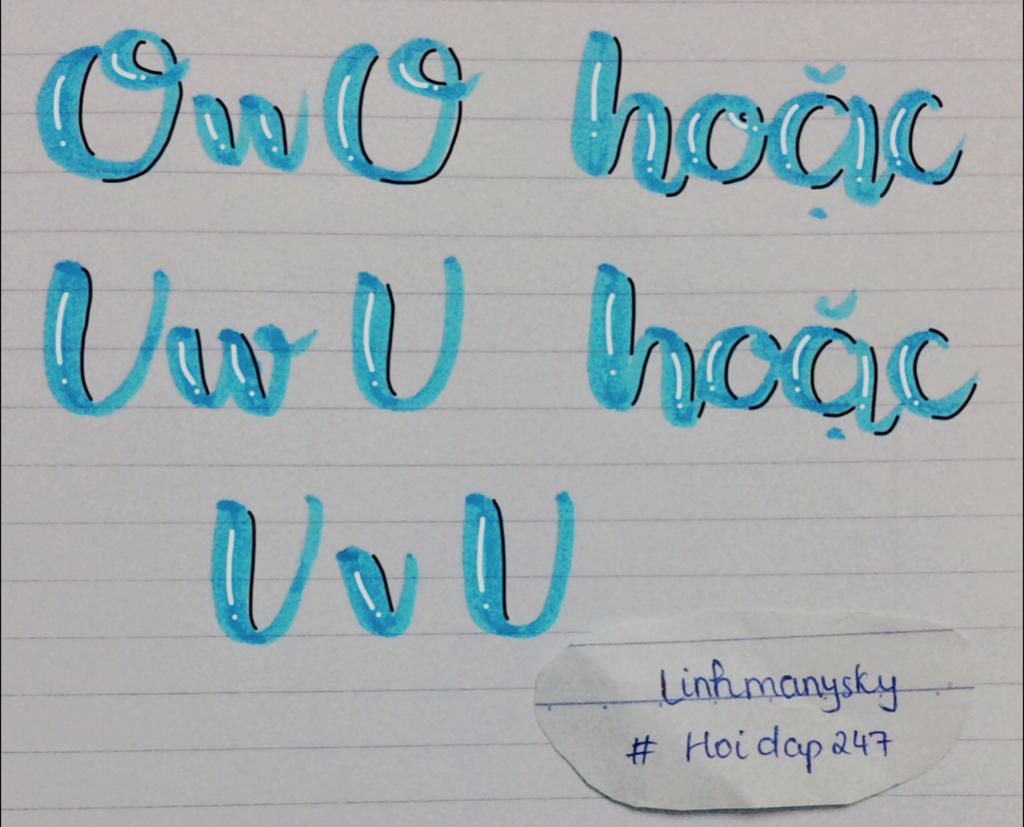 OwO hoặc
UwU hoặc
UvU
Linhmanysky
# Hoidap247